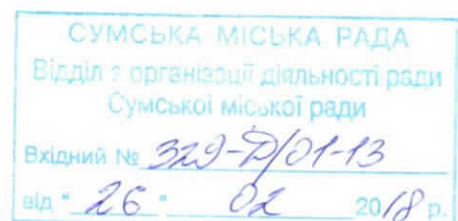 СУМСЬКА МІСЬКА РАДА
Відділ з організації діяльності ради
Сумської міської ради
Вхідний № 329-Д/01-13
від " 26 " 02 2018 р.